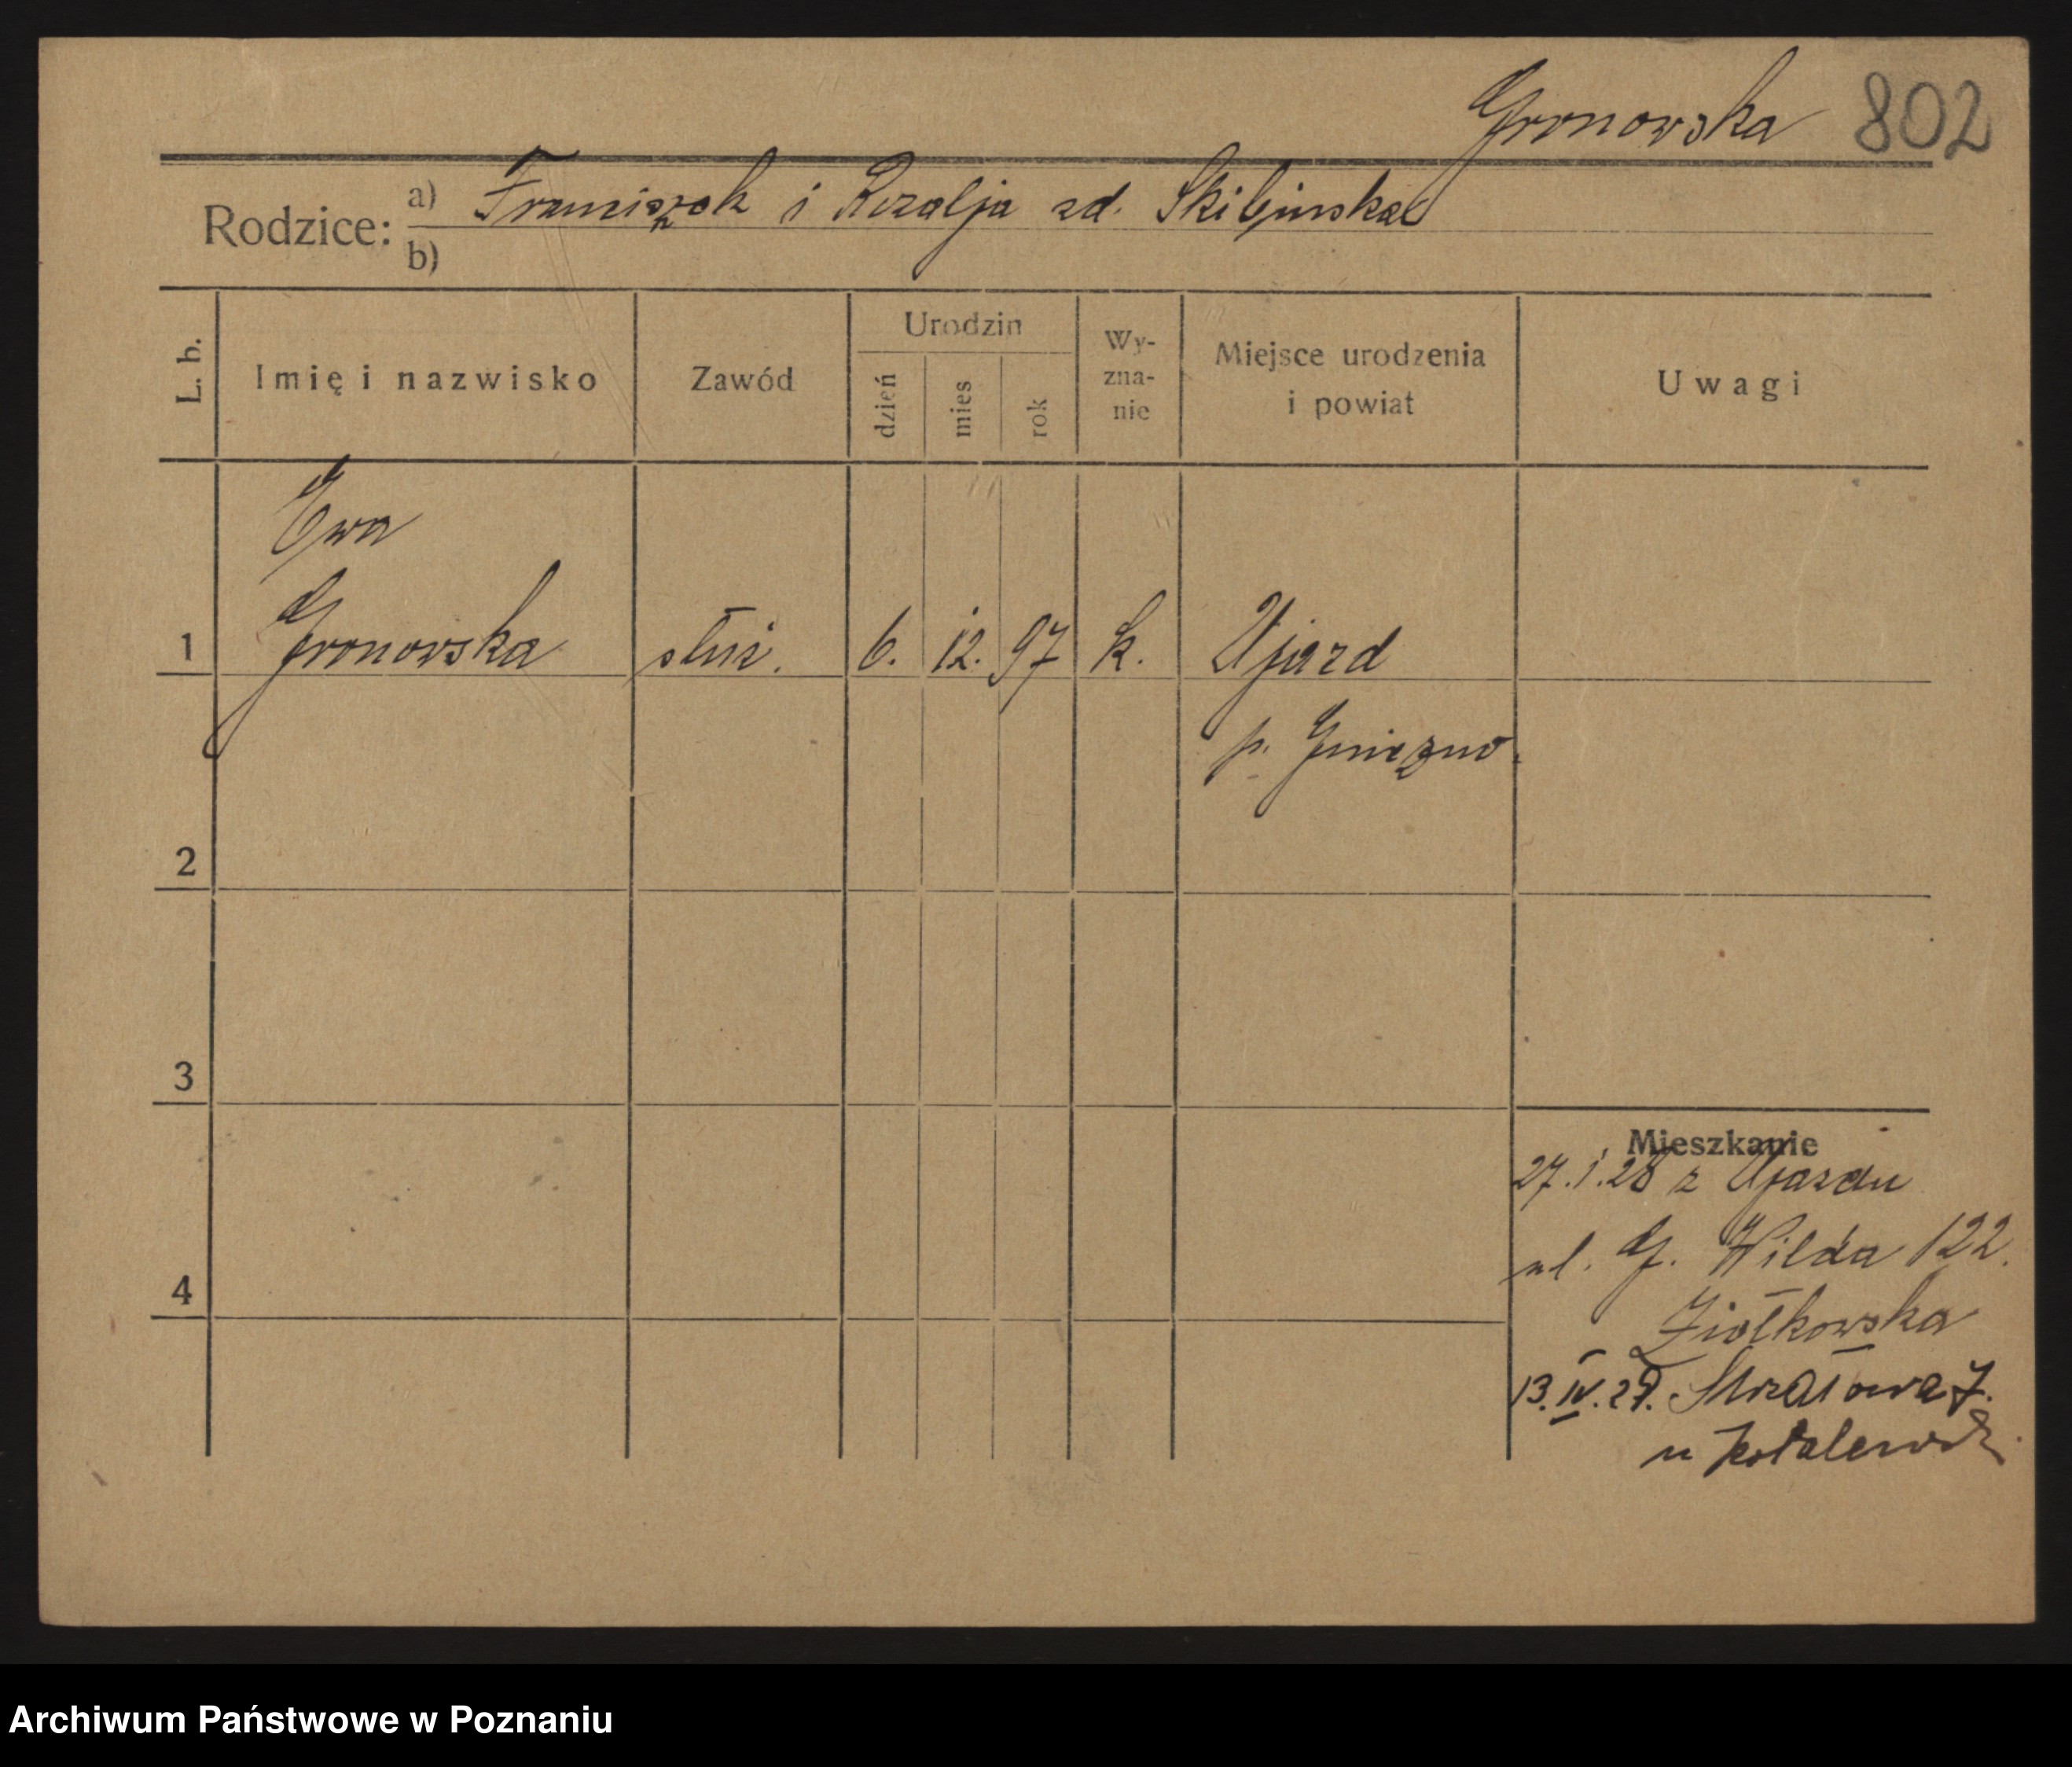 Gronowska 802
Rodzice: a) Franciszek i Rozalja zd. Skibińska
b)
L. b. Imię i nazwisko Zawód Urodzin dzień mies rok Wy-zna-nie Miejsce urodzenia i powiat Uwagi
Ewa
1 Gronowska służ. 6. 12. 97 k. Ujazd
p. Gniezno.
2
3
Mieszkanie
27.1.28 z Ujazdu
ul. G. Wilda 122.
4
Ziółkowska
13.IV.29. Strzałowa 7.
u
Archiwum Państwowe w Poznaniu